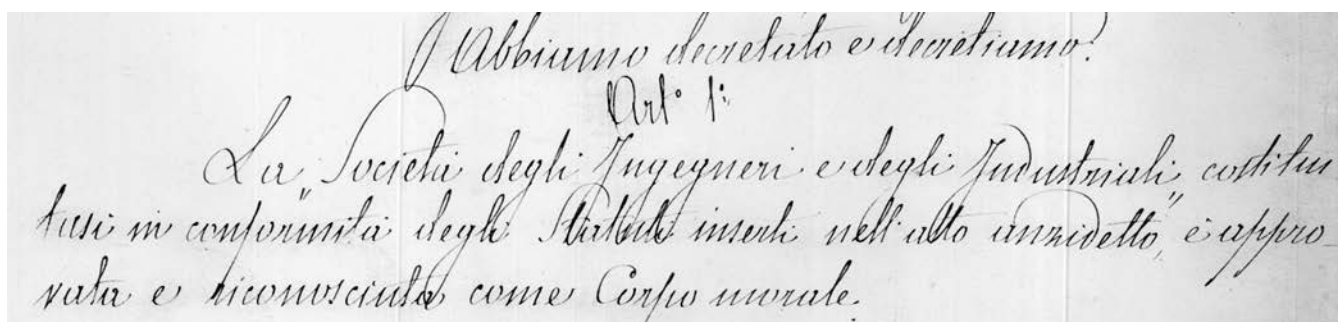 Abbiamo decretato e decretiamo:
Art.° 1°:
La "Società degli Ingegneri e degli Industriali" costitui
tasi in conformità degli Statuti inserti nell'atto anzidetto, è appro-
vata e riconosciuta come Corpo morale.